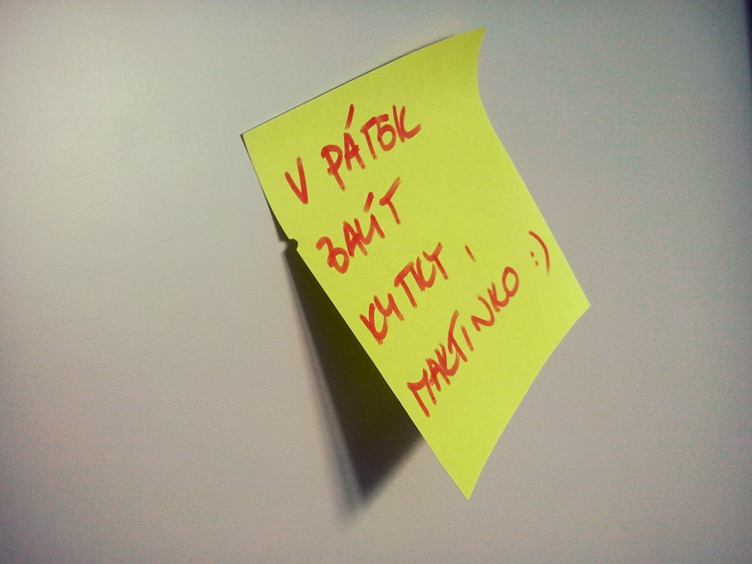 V PÁTEK
ZALÍT
KYTKY,
MARTINKO :)